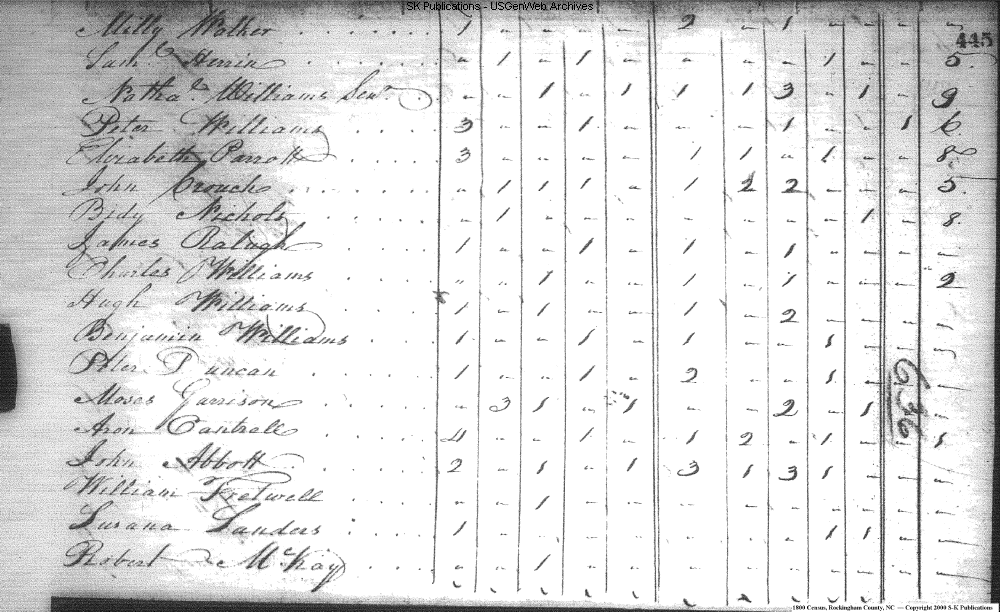 SK Publications - USGenWeb Archives
445
Milly Walker . . . . . . 1 - - - - 2 - 1 - - - -
Saml. Herrin . . . . . . - 1 - 1 - - - - 1 - - 5
Nathal. Williams Senr. . . - - 1 - 1 1 1 3 - 1 - 9
Peter Williams . . . . 3 - - 1 - - - 1 - - 1 6
Elizabeth Parrott . . . . 3 - - - - 1 1 - 1 - - 8
John Crouch . . . . . . - 1 1 1 - 1 2 2 - - - 5
Bidy Nichols . . . . . - 1 - - - - - - - 1 - 8
James Raleigh . . . . 1 - - 1 - 1 - 1 - - - -
Charles Williams . . . . " - 1 - - 1 - 1 - - - 2
Hugh Williams . . . . 1 - 1 - - 1 - 2 - - - -
Benjamin Williams . . . 1 - - 1 - 1 - - 1 - - -
Peter Duncan . . . . . 1 - - 1 - 2 - - 1 - - -
Moses Garrison . . . . - 3 1 - 1 - - 2 - 1 - -
Aron Cantrell . . . . 4 - - 1 - 1 2 - 1 - - 1
John Abbott . . . . . 2 - 1 - 1 3 1 3 1 - - -
William Fretwell . . . - - 1 - - - - - - - - -
Susana Sanders . . . . 1 - - - - - - - 1 1 - -
Robert McKay . . . . - - 1 - - - - - - - - -
636
1800 Census, Rockingham County, NC — Copyright 2000 S-K Publications